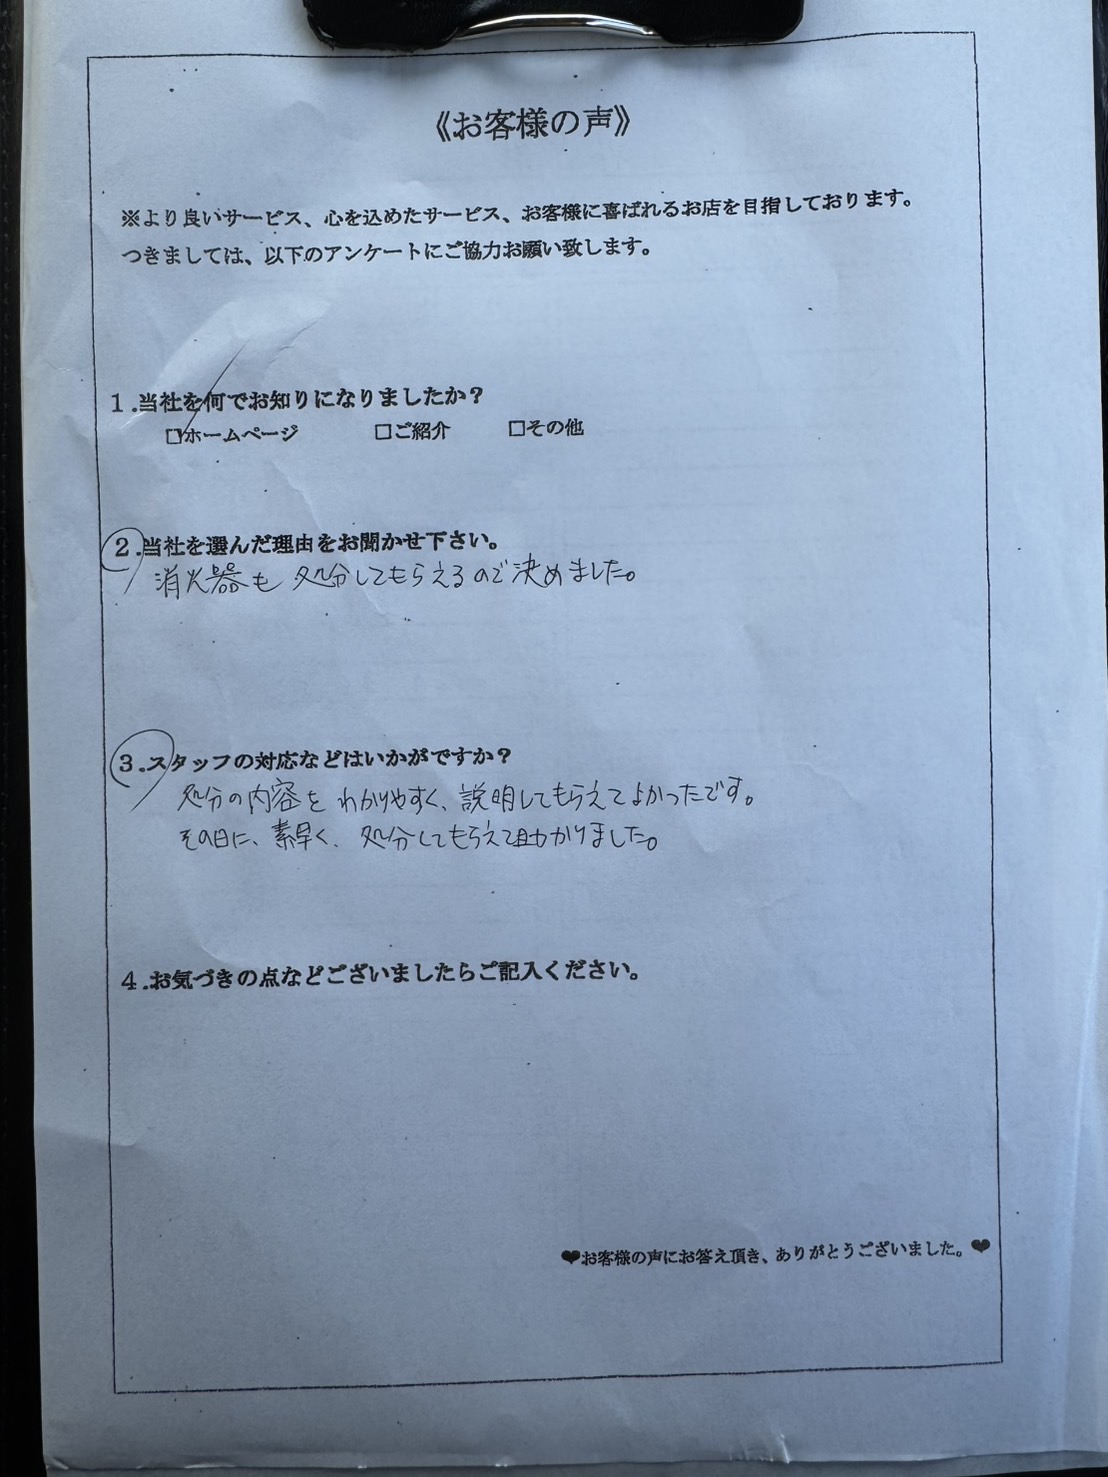 《お客様の声》
※より良いサービス、心を込めたサービス、お客様に喜ばれるお店を目指しております。
つきましては、以下のアンケートにご協力お願い致します。
1.当社を何でお知りになりましたか？
☑ホームページ □ご紹介 □その他
2.当社を選んだ理由をお聞かせ下さい。
消火器も処分してもらえるので決めました。
3.スタッフの対応などはいかがですか？
処分の内容をわかりやすく、説明してもらえてよかったです。
その日に、素早く、処分してもらえて助かりました。
4.お気づきの点などございましたらご記入ください。
♥お客様の声にお答え頂き、ありがとうございました。♥